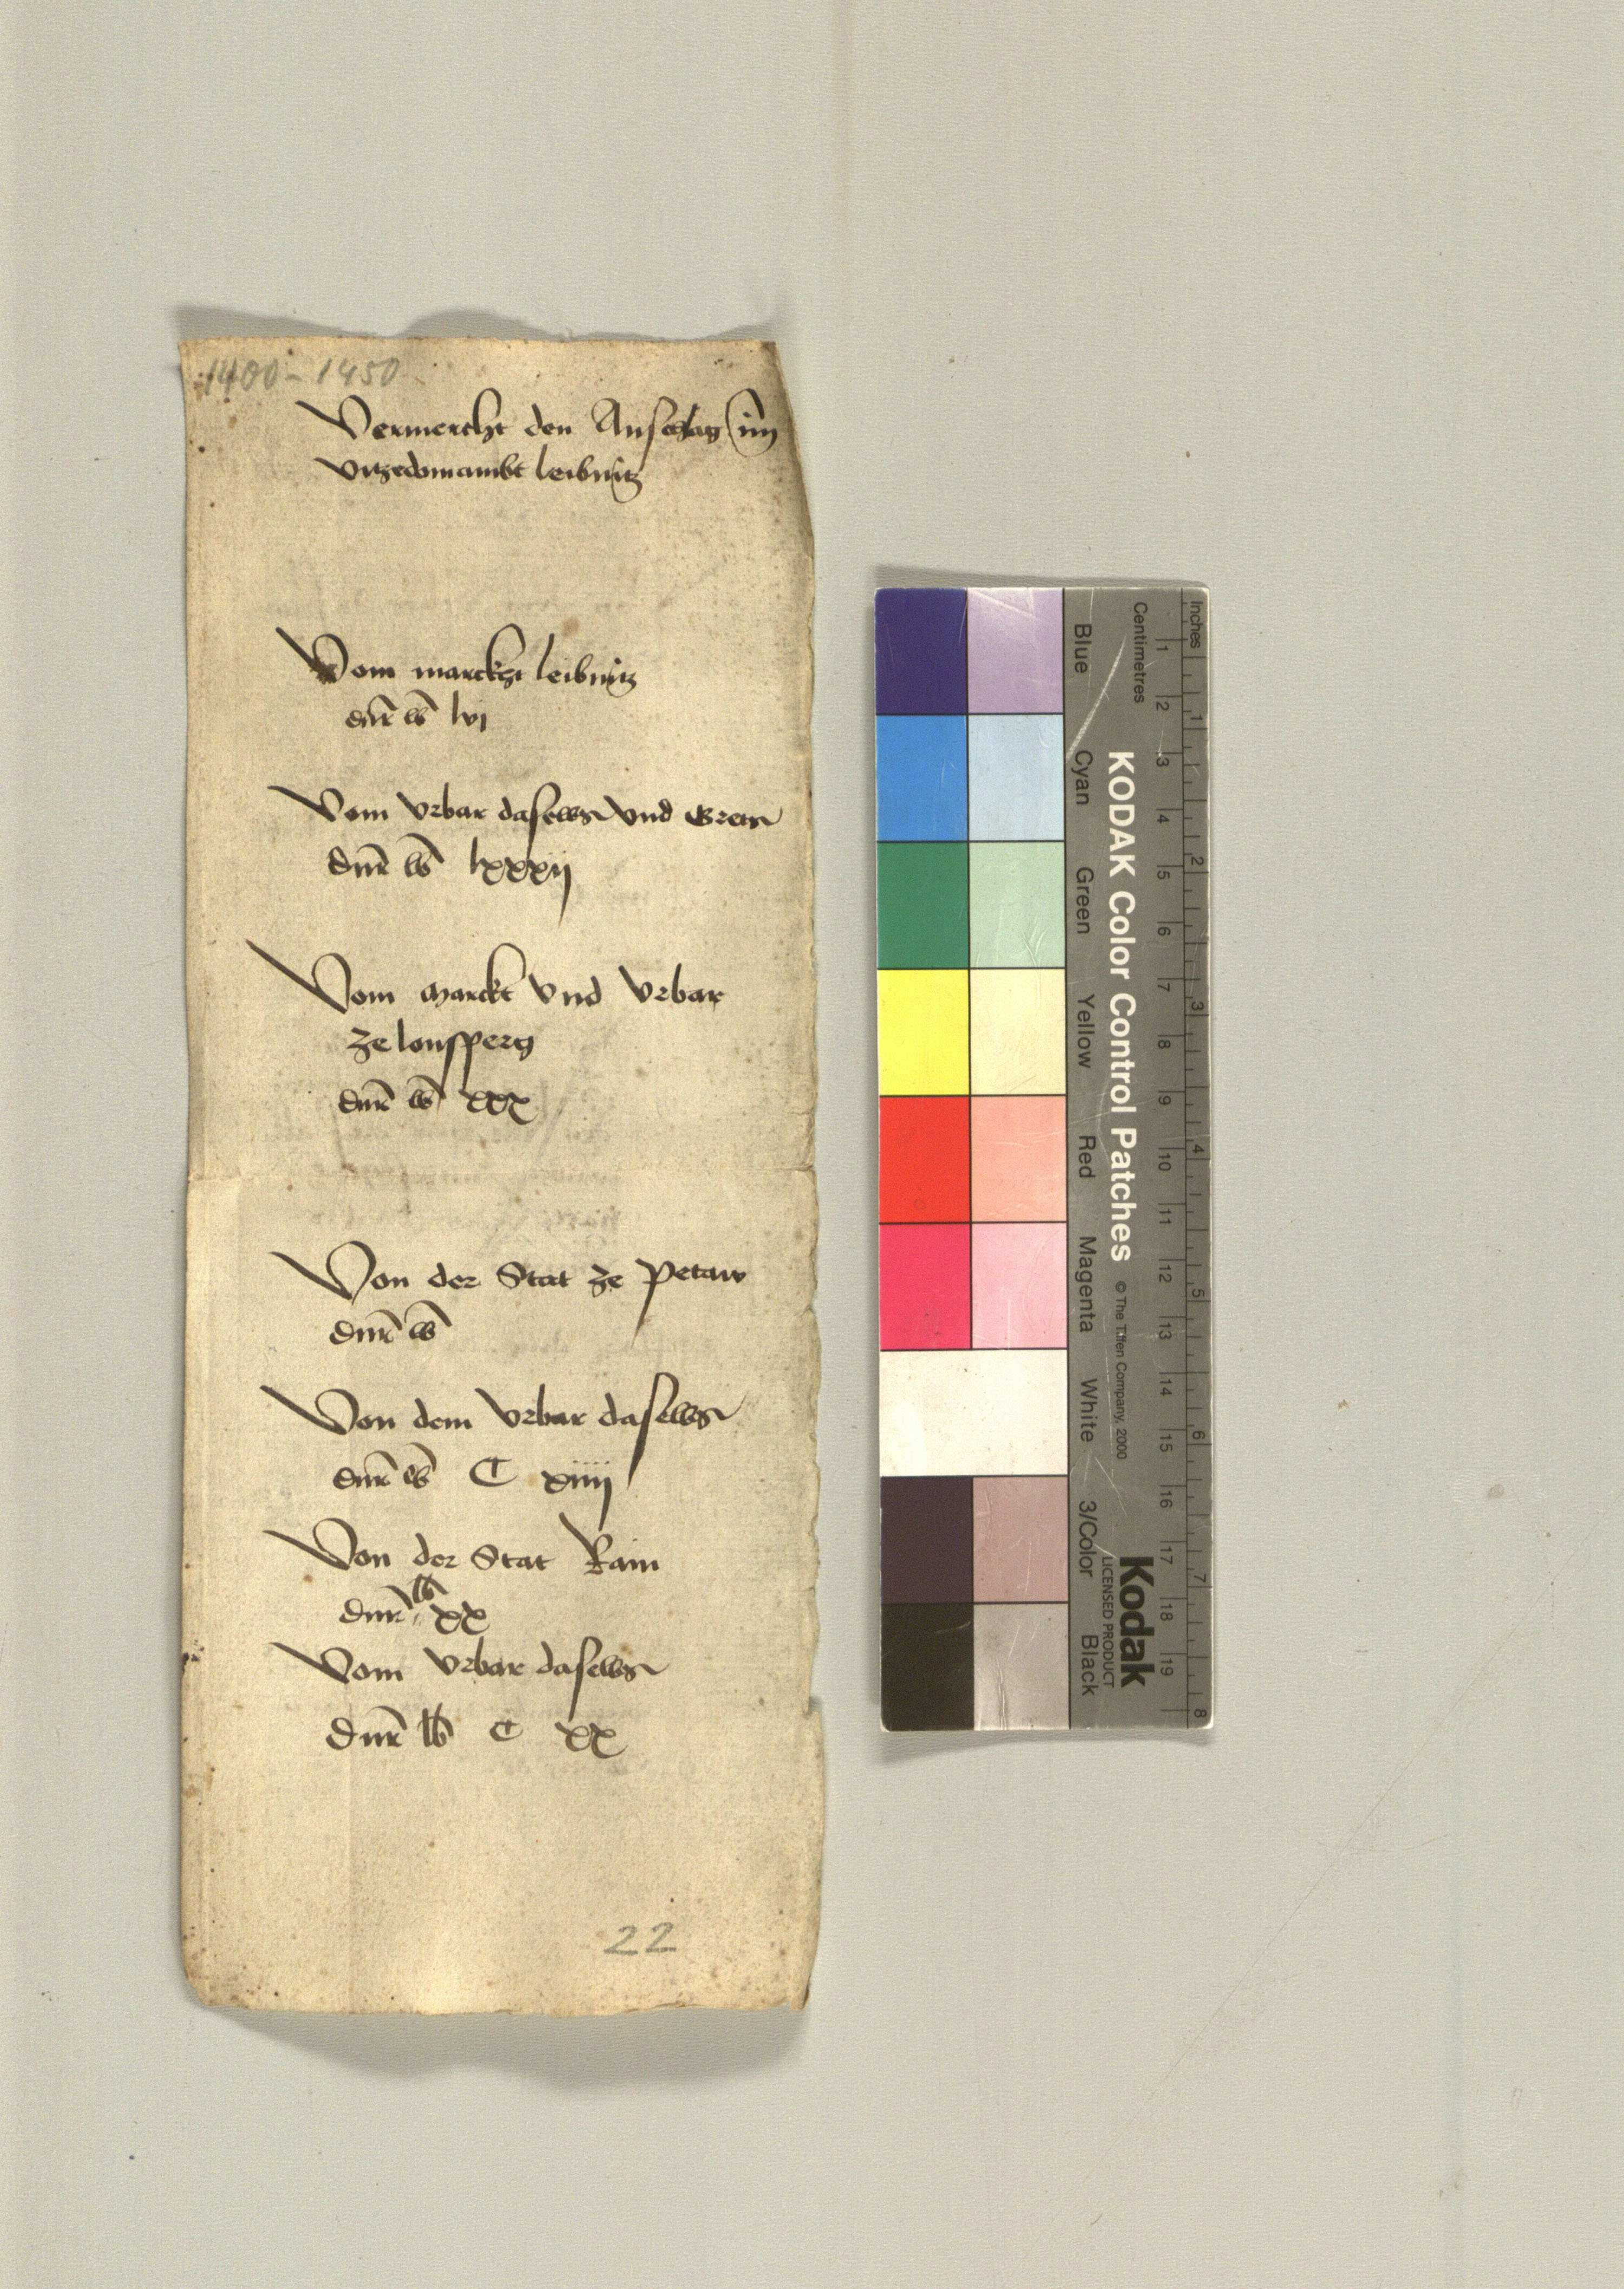 1400 - 1450
Vermercht den Anslag im
vitzedomambt leibnitz
Vom marckt leibnitz
dnr lb lvj
Vom vrbar daselbs vnd
dnr lb lxxxij
Vom marckt vnd vrbar
ze lonsperg
dnr lb xxx
Von der Stat ze Petaw
dnr lb
Von dem vrbar daselbs
dnr lb C xiiij
Von der Stat Rain
dnr lb xx
Vom vrbar daselbs
dnr lb C xx
22
Inches
Centimetres
1 2 3 4 5 6 7 8
1 2 3 4 5 6 7 8 9 10 11 12 13 14 15 16 17 18 19
KODAK Color Control Patches © The Tiffen Company, 2000
Kodak
LICENSED PRODUCT
Blue Cyan Green Yellow Red Magenta White 3/Color Black